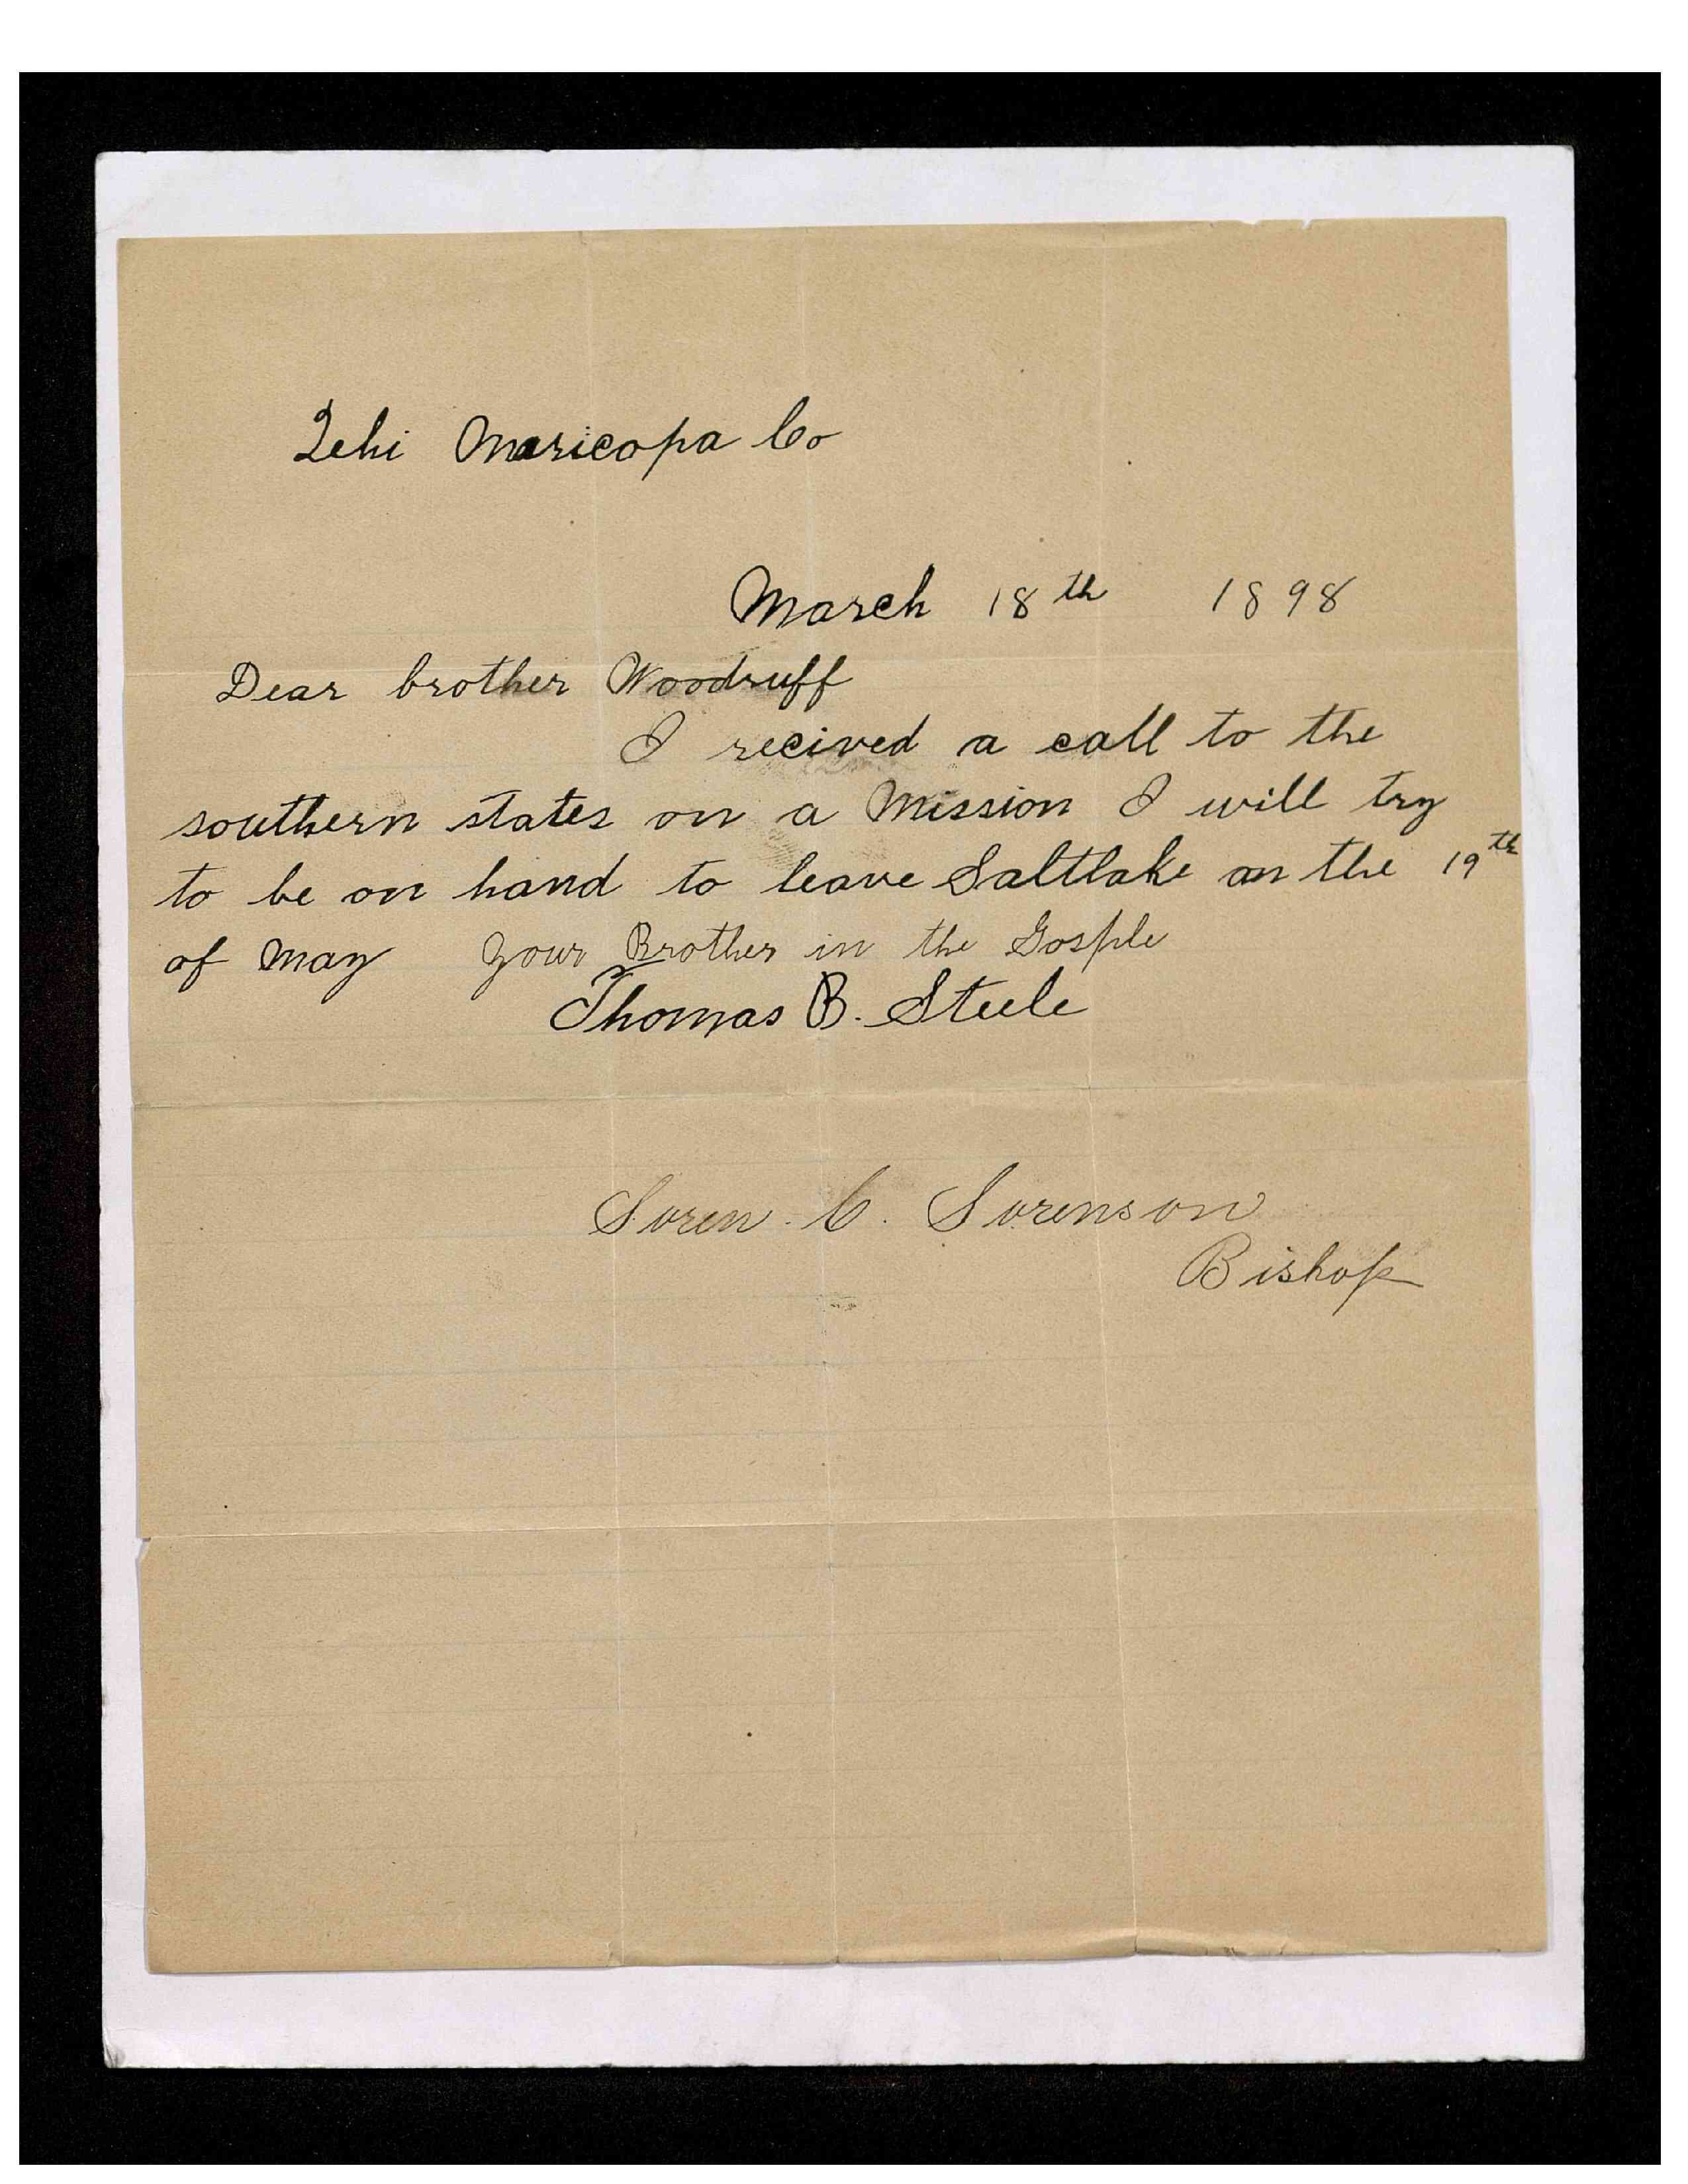 Lehi Maricopa Co
March 18th 1898
Dear brother Woodruff
I recived a call to the
southern states on a Mission I will try
to be on hand to leave Saltlake on the 19th
of May Your Brother in the Gosple
Thomas B. Steele
Soren. C. Sorenson
Bishop